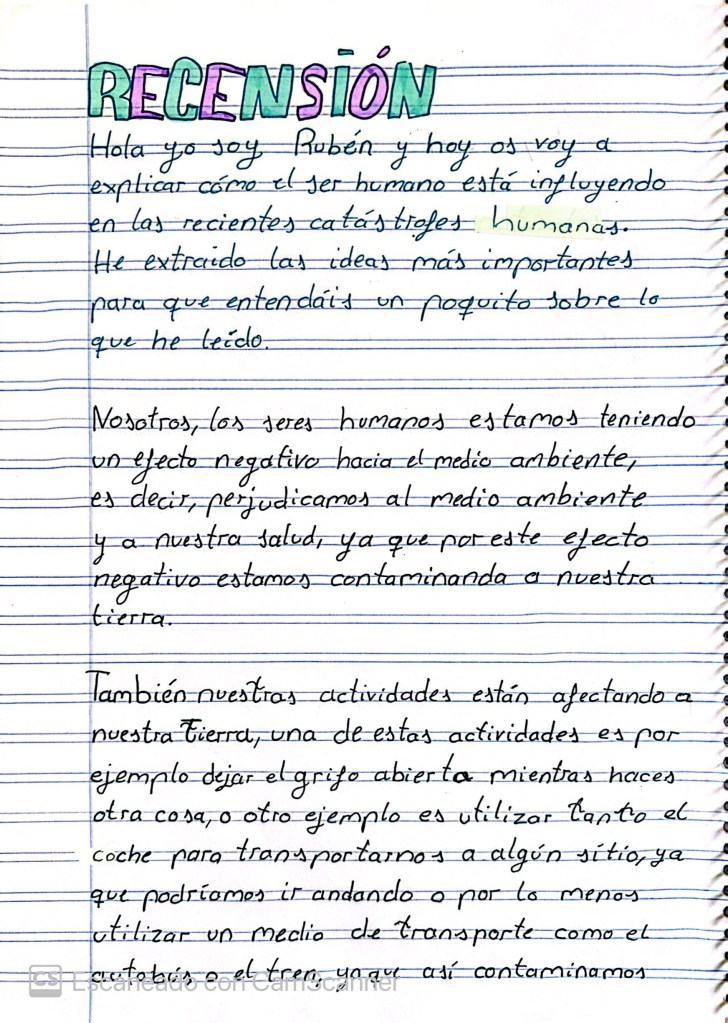 RECENSIÓN
Hola yo soy Rubén y hoy os voy a
explicar cómo el ser humano está influyendo
en las recientes catástrofes humanas.
He extraido las ideas más importantes
para que entendáis un poquito sobre lo
que he leído.
Nosotros, los seres humanos estamos teniendo
un efecto negativo hacia el medio ambiente,
es decir, perjudicamos al medio ambiente
y a nuestra salud, ya que por este efecto
negativo estamos contaminanda a nuestra
tierra.
También nuestras actividades están afectando a
nuestra tierra, una de estas actividades es por
ejemplo dejar el grifo abierta mientras haces
otra cosa, o otro ejemplo es utilizar tanto el
coche para transportarnos a algún sítio, ya
que podríamos ir andando o por lo menos
utilizar un medio de transporte como el
autobús o el tren, ya que así contaminamos
CS Escaneado con CamScanner